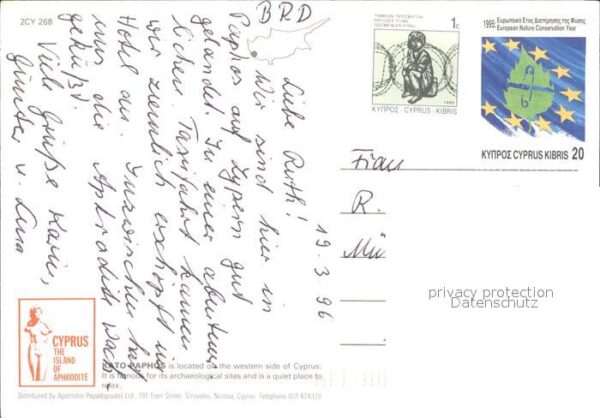 2CY 268
BRD
ΤΑΜΕΙΟΝ ΠΡΟΣΦΥΓΩΝ
REFUGEE FUND
GÖÇMENLER FONU
1c
1995
ΚΥΠΡΟΣ - CYPRUS - KIBRIS
1995: Ευρωπαϊκό Έτος Διατήρησης της Φύσης
European Nature Conservation Year
ΚΥΠΡΟΣ CYPRUS KIBRIS 20
19.3.96
Liebe Ruth!
Wir sind hier in
Paphos auf Zypern gut
gelandet. In einer abenteuer-
lichen Taxifahrt kamen
wir ziemlich erschöpft im
Hotel an. Inzwischen hat
uns die Aphrodite wach-
geküßt
Viele Grüße Karin,
Günter u. Lura
Frau
R.
Mü
privacy protection
Datenschutz
CYPRUS
THE
ISLAND
OF
APHRODITE
KATO PAPHOS is located on the western side of Cyprus.
It is famous for its archaeological sites and is a quiet place to
relax.
Distributed by Apostolos Papadopoulos Ltd., 701 Tseri Street, Strovolos, Nicosia, Cyprus. Telephone